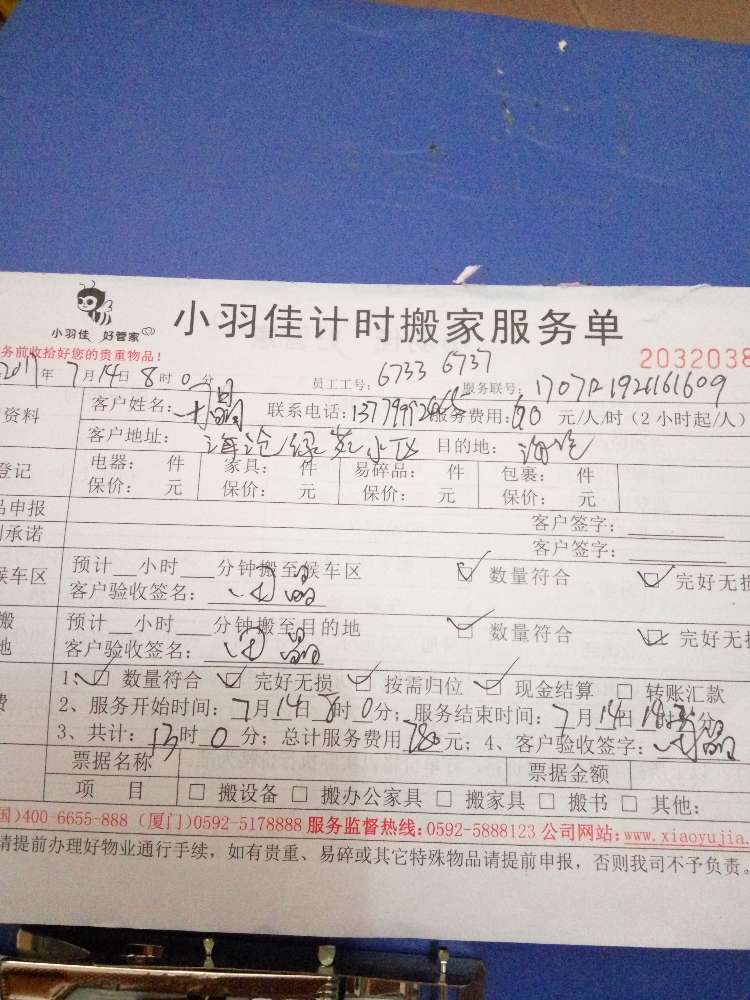 小羽佳 好管家
小羽佳计时搬家服务单
务前收拾好您的贵重物品!
2032038
2017年7月14日8时0分 员工工号: 6733 6737 服务联号:
资料 客户姓名: 联系电话: 服务费用: 60 元/人/时(2小时起/人)
客户地址: 海沧绿苑小区 目的地: 海沧
登记 电器: 件 家具: 件 易碎品: 件 包裹: 件
保价: 元 保价: 元 保价: 元 保价: 元
品申报 客户签字:
承诺 客户签字:
候车区 预计 小时 分钟搬至候车区 数量符合 完好无损
客户验收签名:
搬 预计 小时 分钟搬至目的地 数量符合 完好无损
地 客户验收签名:
1、 数量符合 完好无损 按需归位 现金结算 转账汇款
费 2、服务开始时间: 7月14日8时0分; 服务结束时间: 7月14日14时 分
3、共计: 13时0分; 总计服务费用 780元; 4、客户验收签字:
票据名称 票据金额
项 目 搬设备 搬办公家具 搬家具 搬书 其他:
国)400-6655-888 (厦门)0592-5178888 服务监督热线:0592-5888123 公司网站:www.xiaoyujia.
请提前办理好物业通行手续,如有贵重、易碎或其它特殊物品请提前申报,否则我司不予负责。